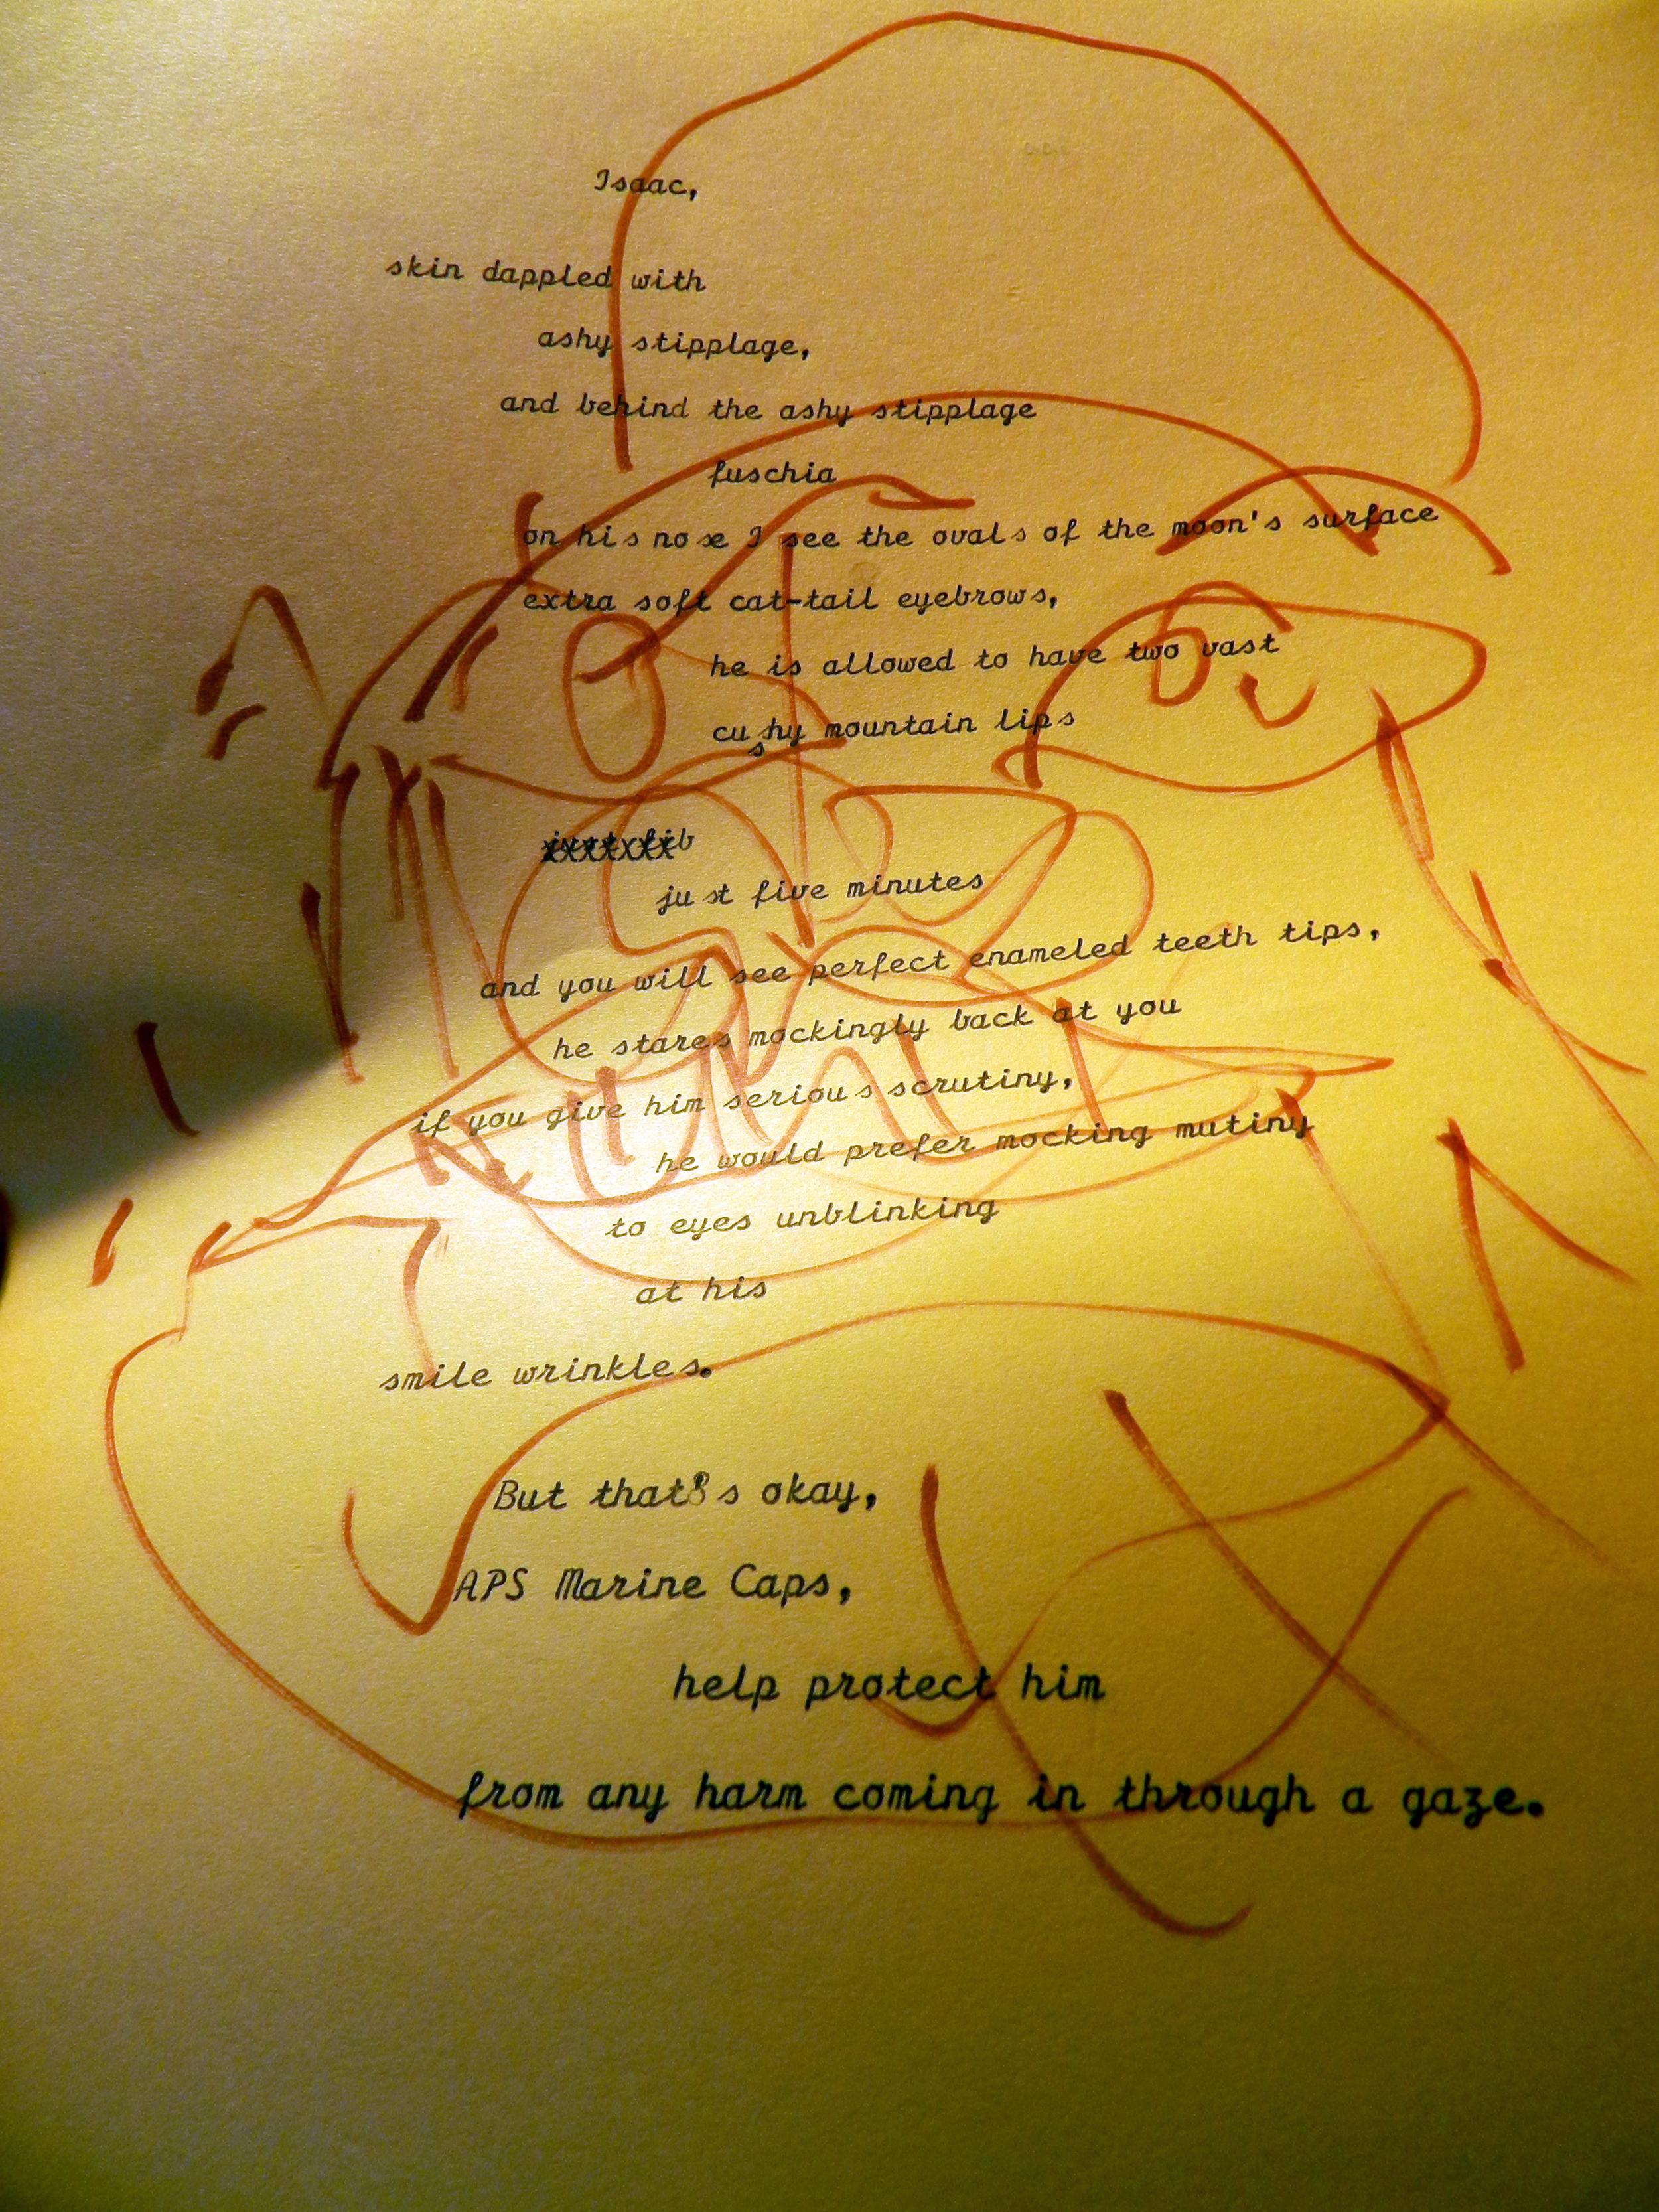 Isaac,
skin dappled with
ashy stipplage,
and behind the ashy stipplage
fuschia
on his nose I see the ovals of the moon's surface
extra soft cat-tail eyebrows,
he is allowed to have two vast
cushy mountain lips
just five minutes
and you will see perfect enameled teeth tips,
he stares mockingly back at you
if you give him serious scrutiny,
he would prefer mocking mutiny
to eyes unblinking
at his
smile wrinkles.
But that8s okay,
APS Marine Caps,
help protect him
from any harm coming in through a gaze.